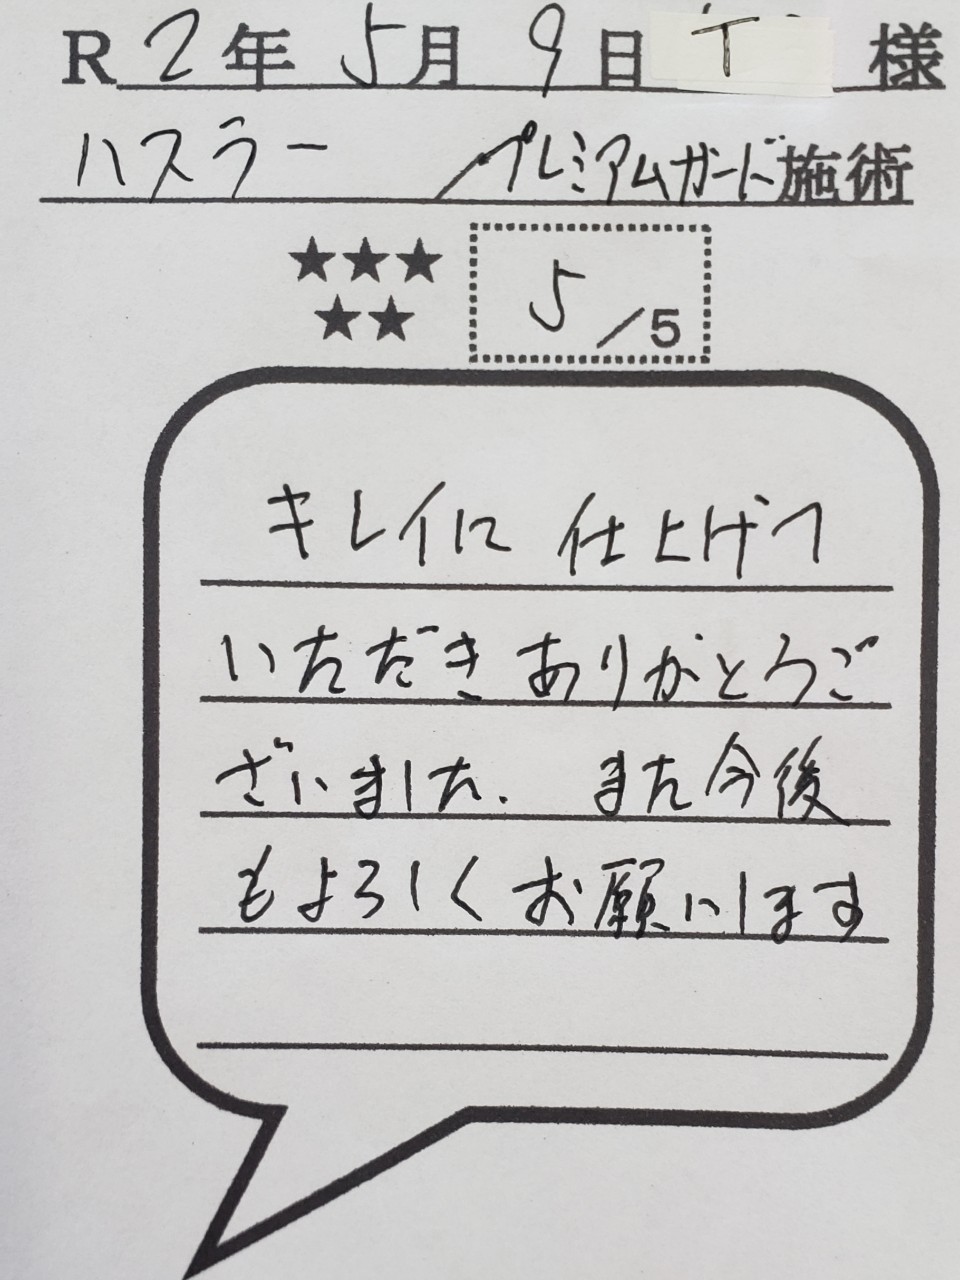 R2年5月9日 T 様
ハスラー／プレミアムガード施術
★★★
★★
5／5
キレイに仕上げて
いただきありがとうご
ざいました. また今後
もよろしくお願いします